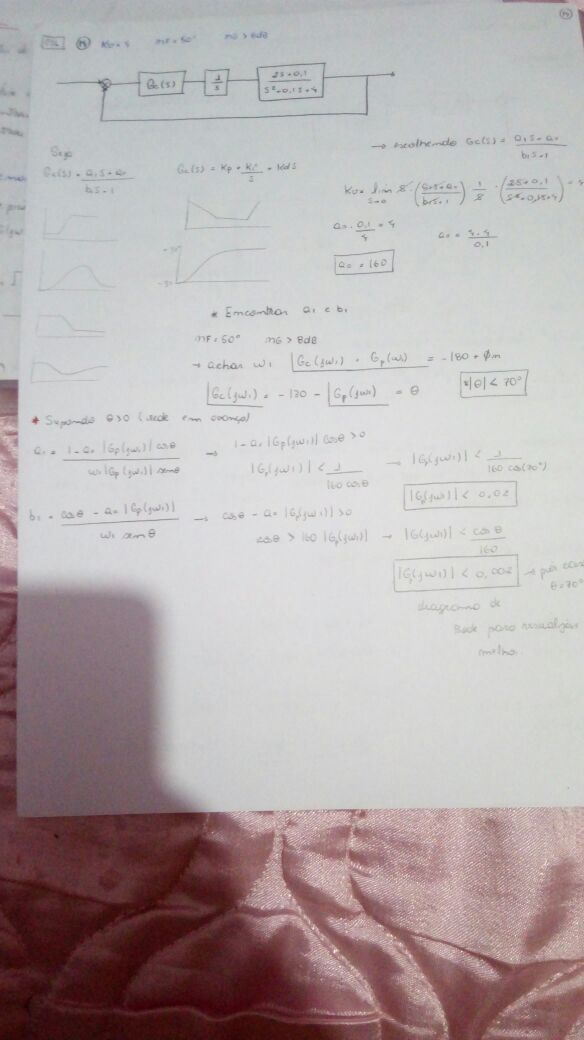 Kv = 4 MF = 50° MG > 8dB
Gc(s) 1/s (2s+0,1)/(s²+0,1s+4)
Seja
Gc(s) = (a₁s+a₀)/(b₁s+1) Gc(s) = Kp + Ki/s + Kds
→ escolhendo Gc(s) = (a₁s+a₀)/(b₁s+1)
Kv = lim s→0 s · ((a₁s+a₀)/(b₁s+1)) · 1/s · ((2s+0,1)/(s²+0,1s+4)) = 4
a₀ · 0,1/4 = 4 a₀ = 4·4/0,1
a₀ = 160
* Encontrar a₁ e b₁
MF = 50° MG > 8dB
→ achar ω₁ ∠Gc(jω₁) · Gp(ω₁) = -180 + Φm
∠Gc(jω₁) = -130 - ∠Gp(jω₁) = θ *|θ| < 70°
* Supondo θ>0 (rede em avanço)
a₁ = (1 - a₀ |Gp(jω₁)| cosθ)/(ω₁ |Gp(jω₁)| senθ) → 1 - a₀ |Gp(jω₁)| cosθ > 0
|Gp(jω₁)| < 1/(160 cosθ) → |Gp(jω₁)| < 1/(160 cos(70°))
|Gp(jω₁)| < 0,02
b₁ = (cosθ - a₀ |Gp(jω₁)|)/(ω₁ senθ) → cosθ - a₀ |Gp(jω₁)| > 0
cosθ > 160 |Gp(jω₁)| → |G(jω₁)| < cosθ/160
|Gp(jω₁)| < 0,002 → pior caso
θ=70°
diagrama de
Bode para visualizar
melhor.